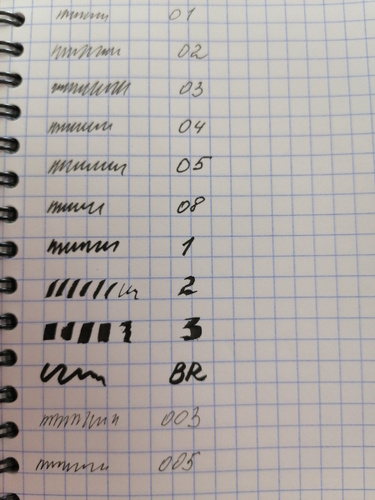 01
02
03
04
05
08
1
2
3
BR
003
005